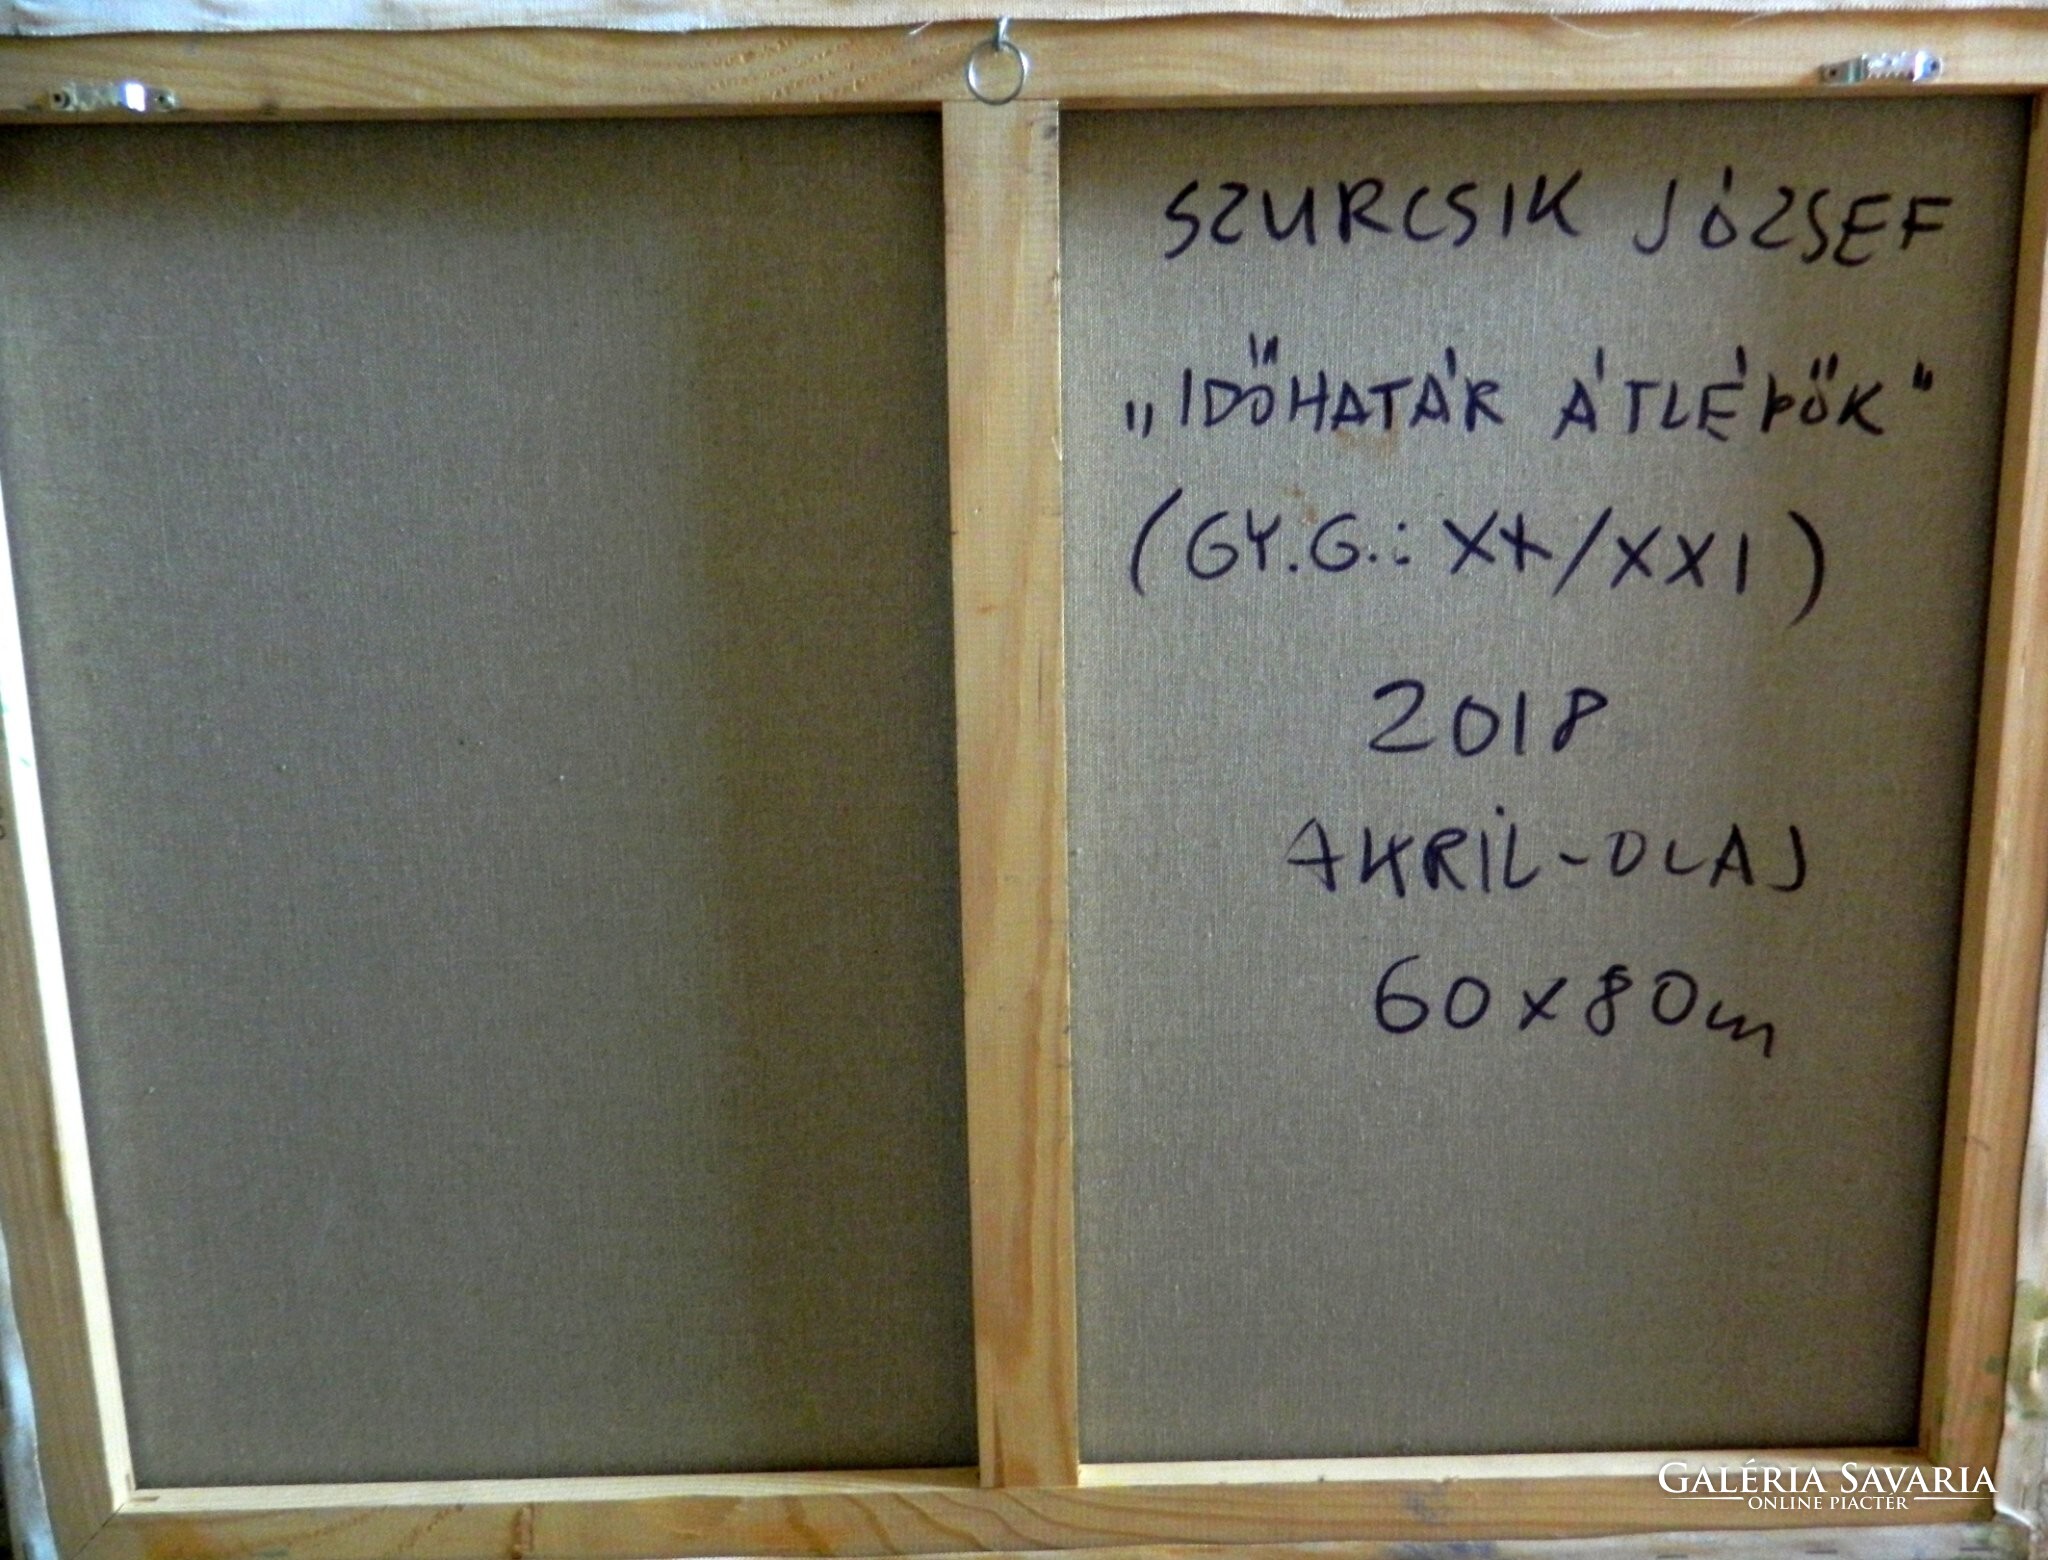 SZURCSIK JÓZSEF
„IDŐHATÁR ÁTLÉPŐK"
(GY.G.: XX/XXI)
2018
AKRIL-OLAJ
60x80cm
GALÉRIA SAVARIA
ONLINE PIACTÉR